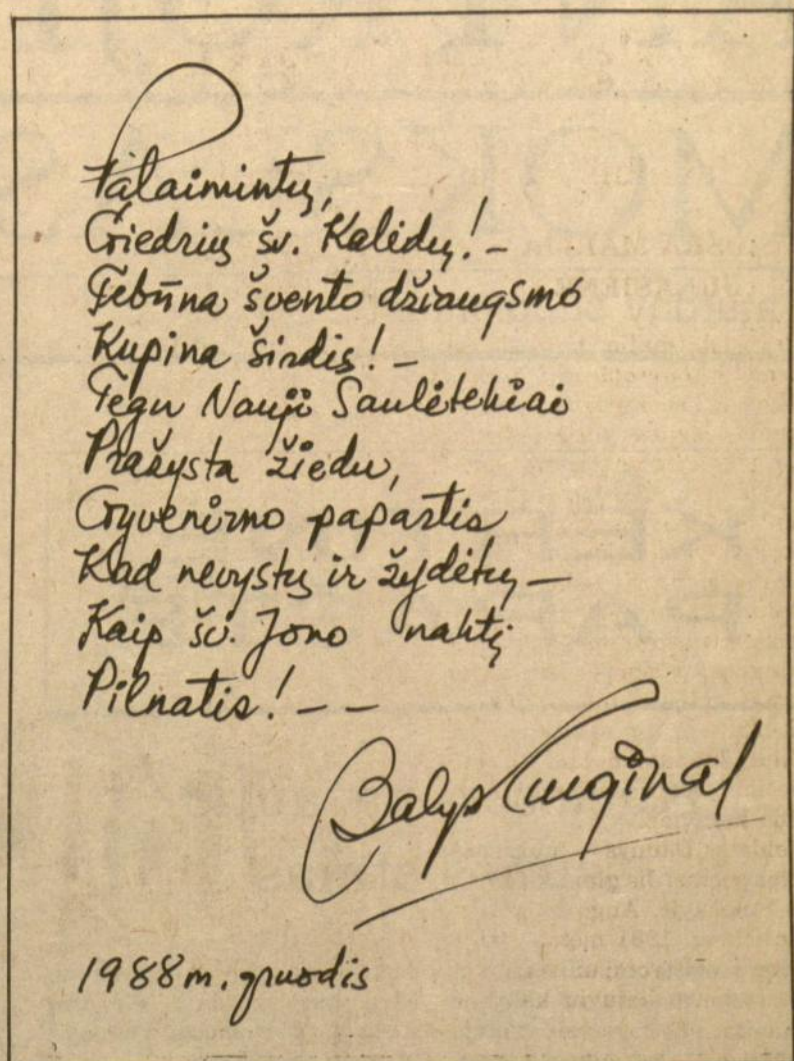 Palaimintų,
Giedrių šv. Kalėdų! –
Tebūna švento džiaugsmo
Kupina širdis! –
Tegu Nauji Saulėtekiai
Pražysta žiedu,
Gyvenimo papartis
Kad nevystų ir žydėtų –
Kaip šv. Jono naktį
Pilnatis! – –
Balys
1988 m. gruodis